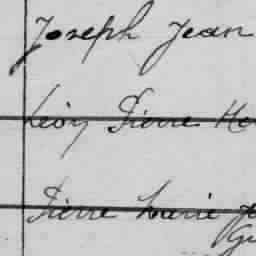 Joseph Jean
Léon Pierre
Pierre Marie